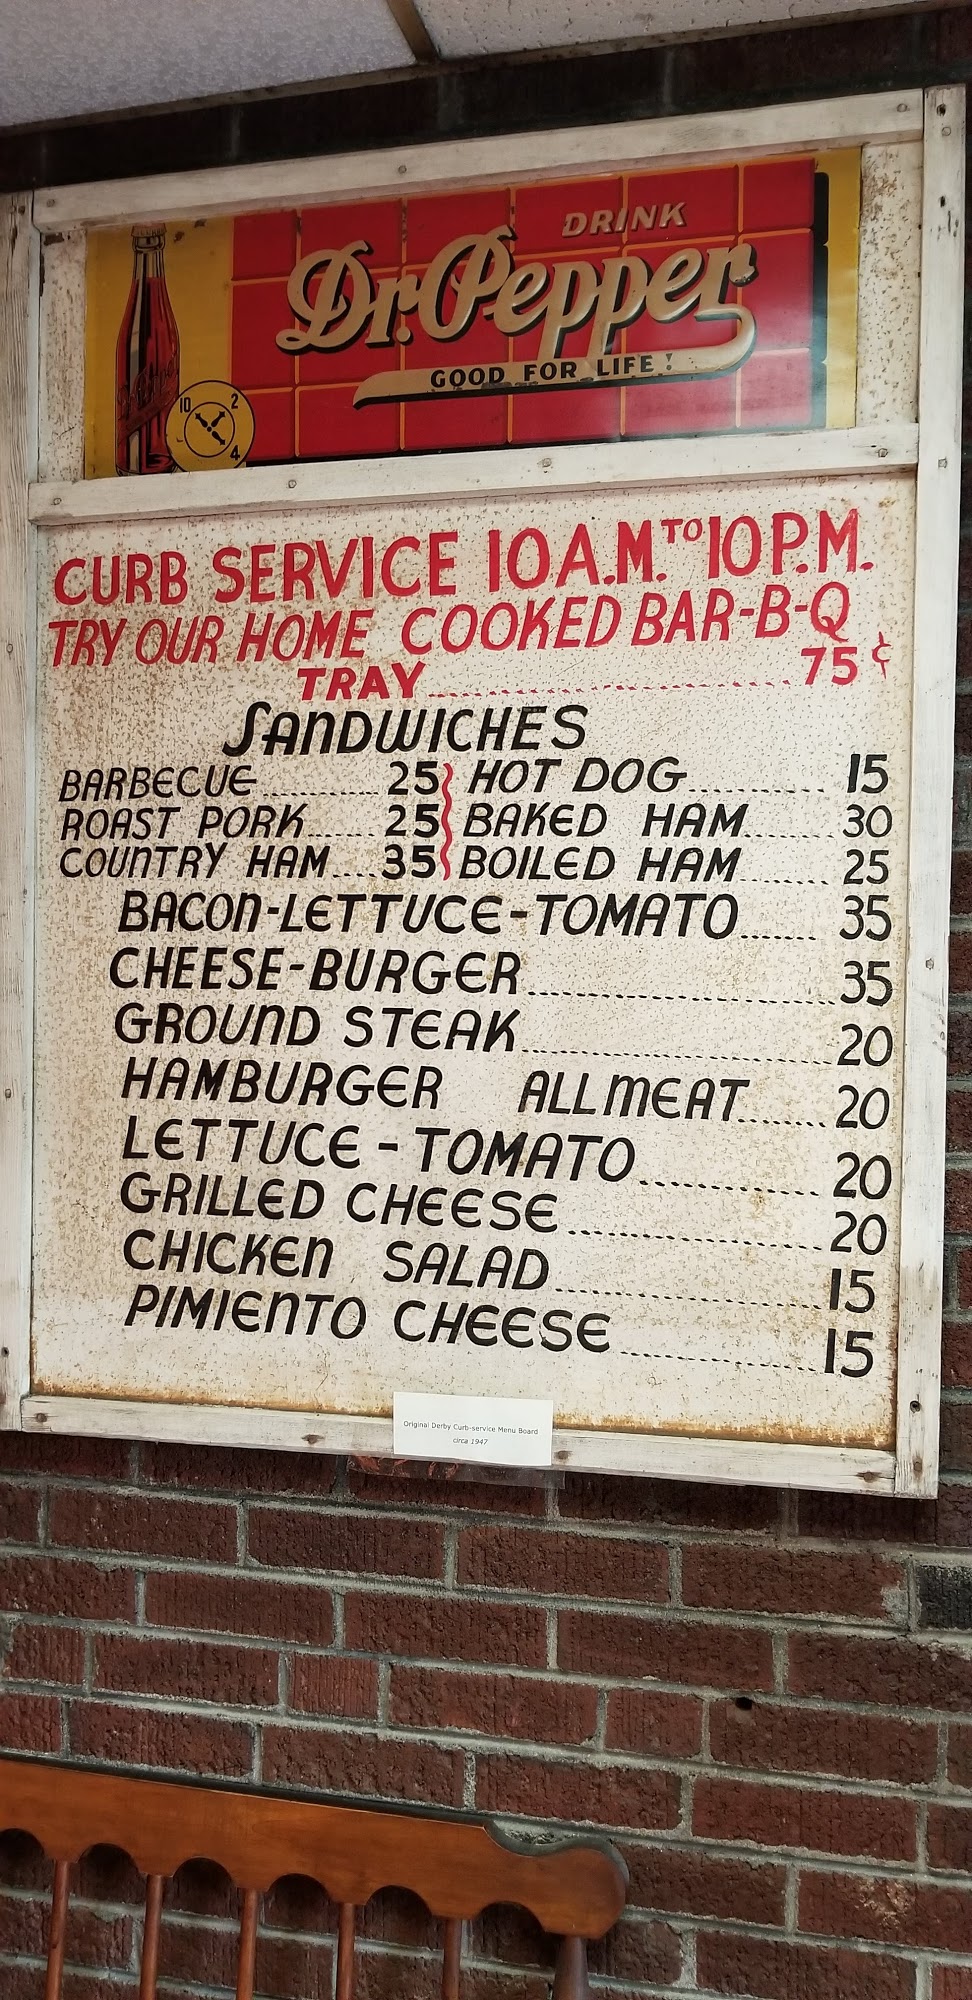 DRINK
Dr. Pepper
GOOD FOR LIFE!
10 2
4
CURB SERVICE 10 A.M. TO 10 P.M.
TRY OUR HOME COOKED BAR-B-Q
TRAY 75¢
SANDWICHES
BARBECUE 25 HOT DOG 15
ROAST PORK 25 BAKED HAM 30
COUNTRY HAM 35 BOILED HAM 25
BACON-LETTUCE-TOMATO 35
CHEESE-BURGER 35
GROUND STEAK 20
HAMBURGER ALL MEAT 20
LETTUCE-TOMATO 20
GRILLED CHEESE 20
CHICKEN SALAD 15
PIMIENTO CHEESE 15
Original Derby Curb-service Menu Board
circa 1947